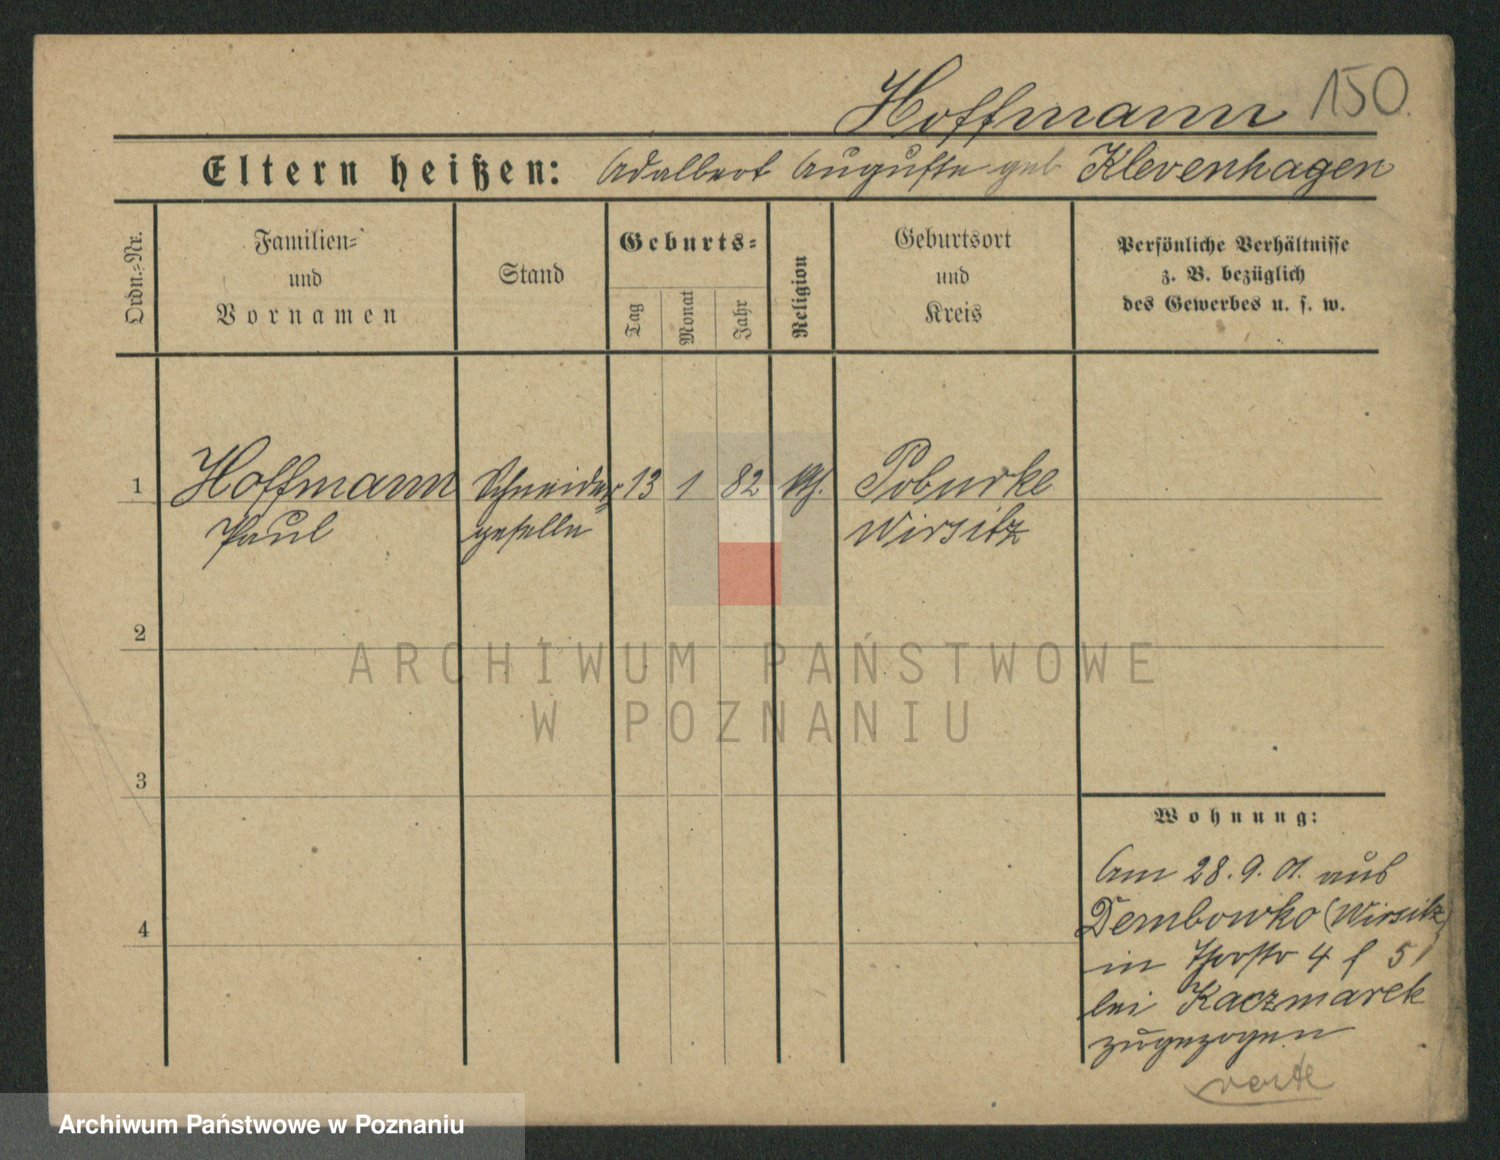 Hoffmann 150.
Eltern heißen: Adalbert Auguste geb Klevenhagen
Ordn.-Nr.
Familien-
und
Vornamen
Stand
Geburts-
Tag
Monat
Jahr
Religion
Geburtsort
und
Kreis
Persönliche Verhältnisse
z. B. bezüglich
des Gewerbes u. s. w.
1 Hoffmann Schneider 13 1 82 Poburke
Paul geselle Wirsitz
2
3
4
Wohnung:
Am 28.9.01. aus
Dembowko (Wirsitz)
in 4
bei Kaczmarek
zugezogen
verte
ARCHIWUM PAŃSTWOWE
W POZNANIU
Archiwum Państwowe w Poznaniu